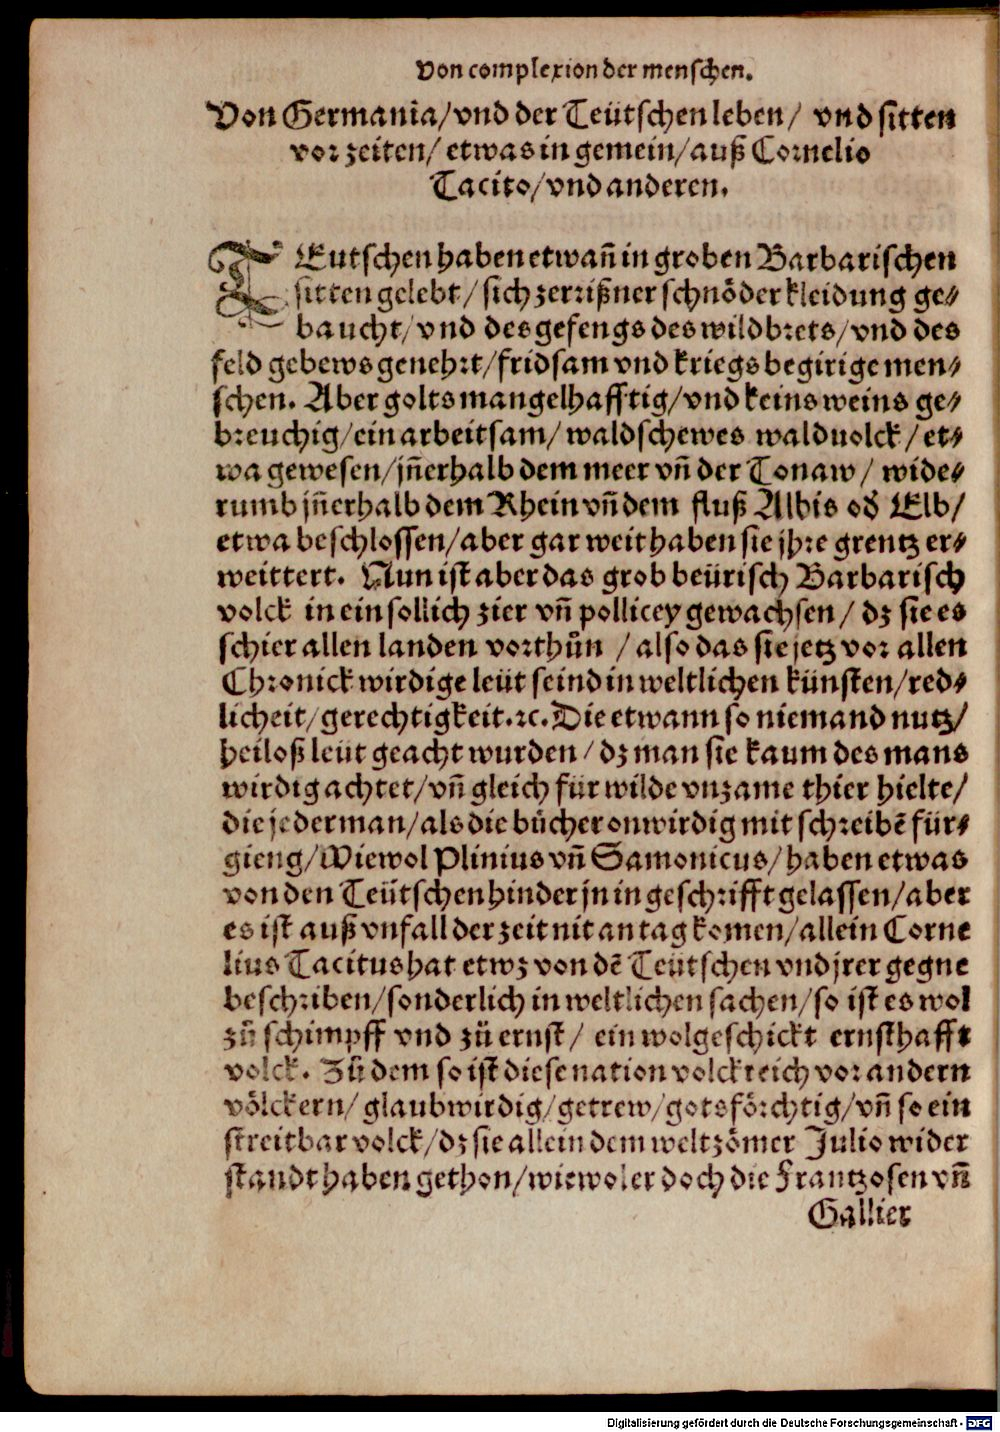 Von complexion der menschen.
Von Germania/vnd der Teütschen leben/ vnd sitten
vor zeiten/ etwas in gemein/auß Cornelio
Tacito/vnd anderen.
TEutschen haben etwañ in groben Barbarischen
sitten gelebt/ sich zerrißner schnöder kleidung ge-
braucht/vnd des gefengs des wildbrets/vnd des
feld gebews genehrt/fridsam vnd kriegs begirige men-
schen. Aber golts mangelhafftig/vnd keins weins ge-
breuchig/ein arbeitsam/ waldschewes walduolck/et-
wa gewesen/jñerhalb dem meer vñ der Tonaw/ wide-
rumb jñerhalb dem Rhein vñ dem fluß Albis od Elb/
etwa beschlossen/aber gar weit haben sie jhre grentz er-
weittert. Nun ist aber das grob beürisch Barbarisch
volck in ein sollich zier vñ pollicey gewachsen/ dz sie es
schier allen landen vorthůn /also das sie jetz vor allen
Chronick wirdige leüt seind in weltlichen künsten/red-
licheit/gerechtigkeit.ꝛc. Die etwann so niemand nutz/
heiloß leüt geacht wurden/dz man sie kaum des mans
wirdig achtet/vñ gleich für wilde vnzame thier hielte/
die jederman/als die bücher onwirdig mit schreibẽ für-
gieng/Wiewol Plinius vñ Samonicus/haben etwas
von den Teütschen hinder jn in geschrifft gelassen/aber
es ist auß vnfall der zeit nit an tag komen/allein Corne
lius Tacitus hat etwz von dẽ Teütschen vnd jrer gegne
beschriben/sonderlich in weltlichen sachen/so ist es wol
zů schimpff vnd zů ernst/ ein wolgeschickt ernsthafft
volck. Zů dem so ist diese nation volckreich vor andern
völckern/ glaubwirdig/getrew/gotsförchtig/vñ so ein
streitbar volck/dz sie allein dem weltzömer Julio wider
standt haben gethon/wiewol er doch die Frantzosen vñ
Gallier
Digitalisierung gefördert durch die Deutsche Forschungsgemeinschaft - DFG